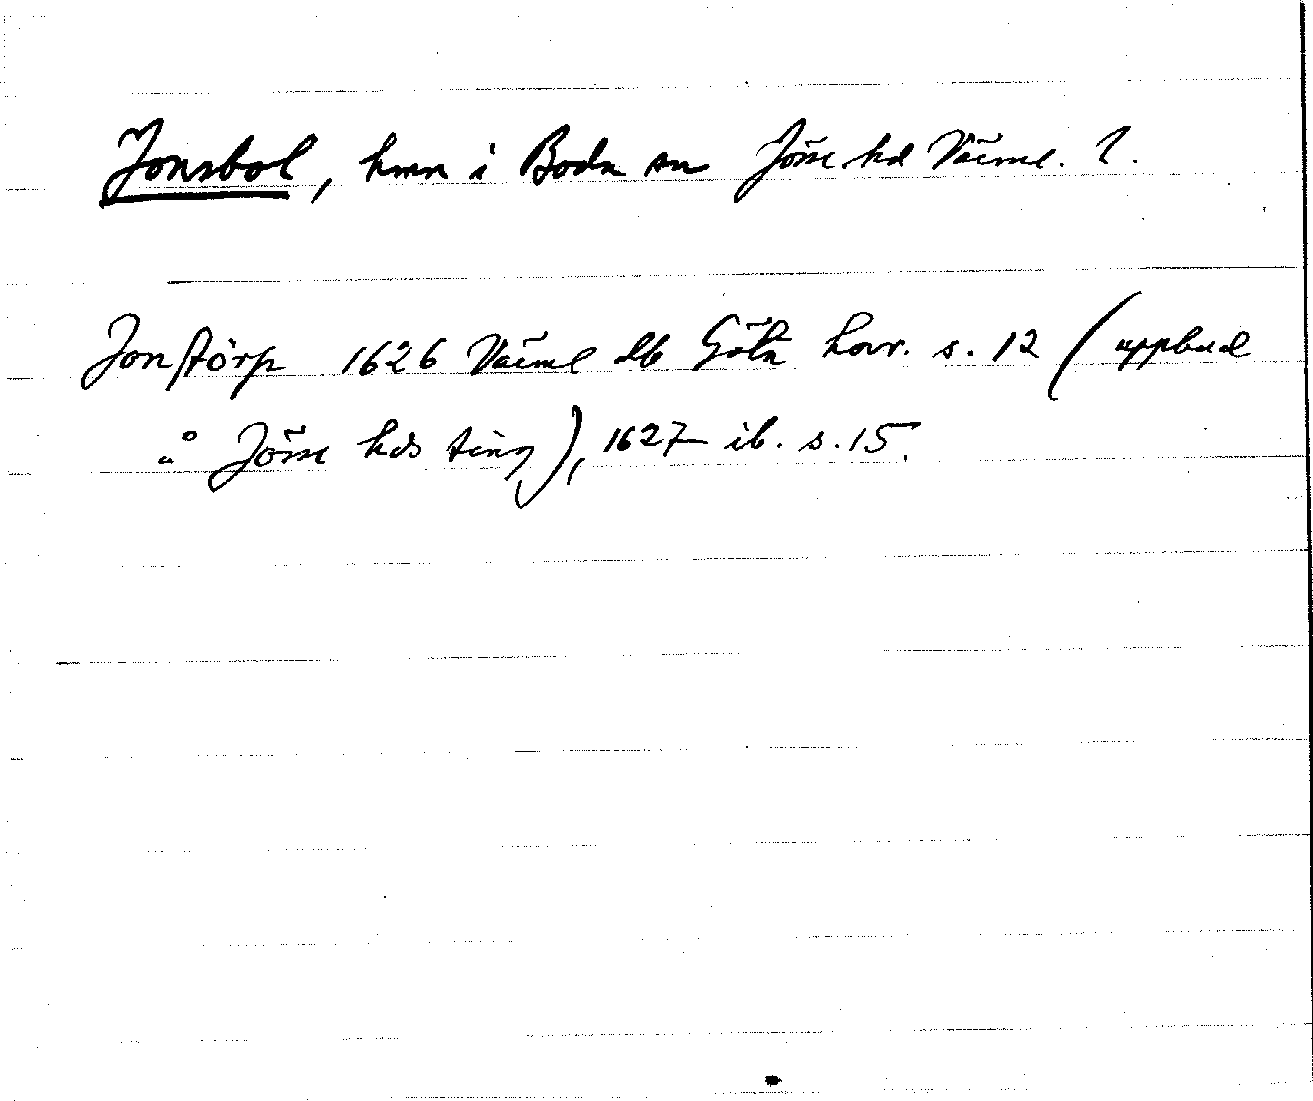 Jonsbol, hmn i Boda sn Jösse hd Värml. l.
Jonstörp 1626 Värml db Göta hovr. s. 12 (uppbud
å Jösse hds ting), 1627 ib. s. 15.